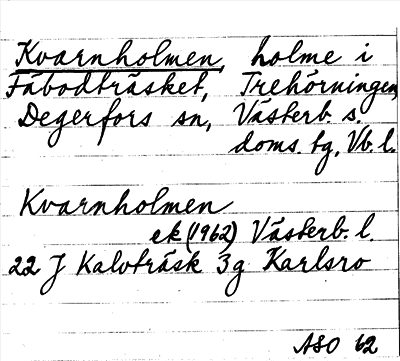 Kvarnholmen, holme i
Fäbodträsket, Trehörningen,
Degerfors sn, Västerb. s.
doms. tg, Vb. l.
Kvarnholmen
ek (1962) Västerb. l.
22 J Kalvträsk 3g Karlsro
ASO 62